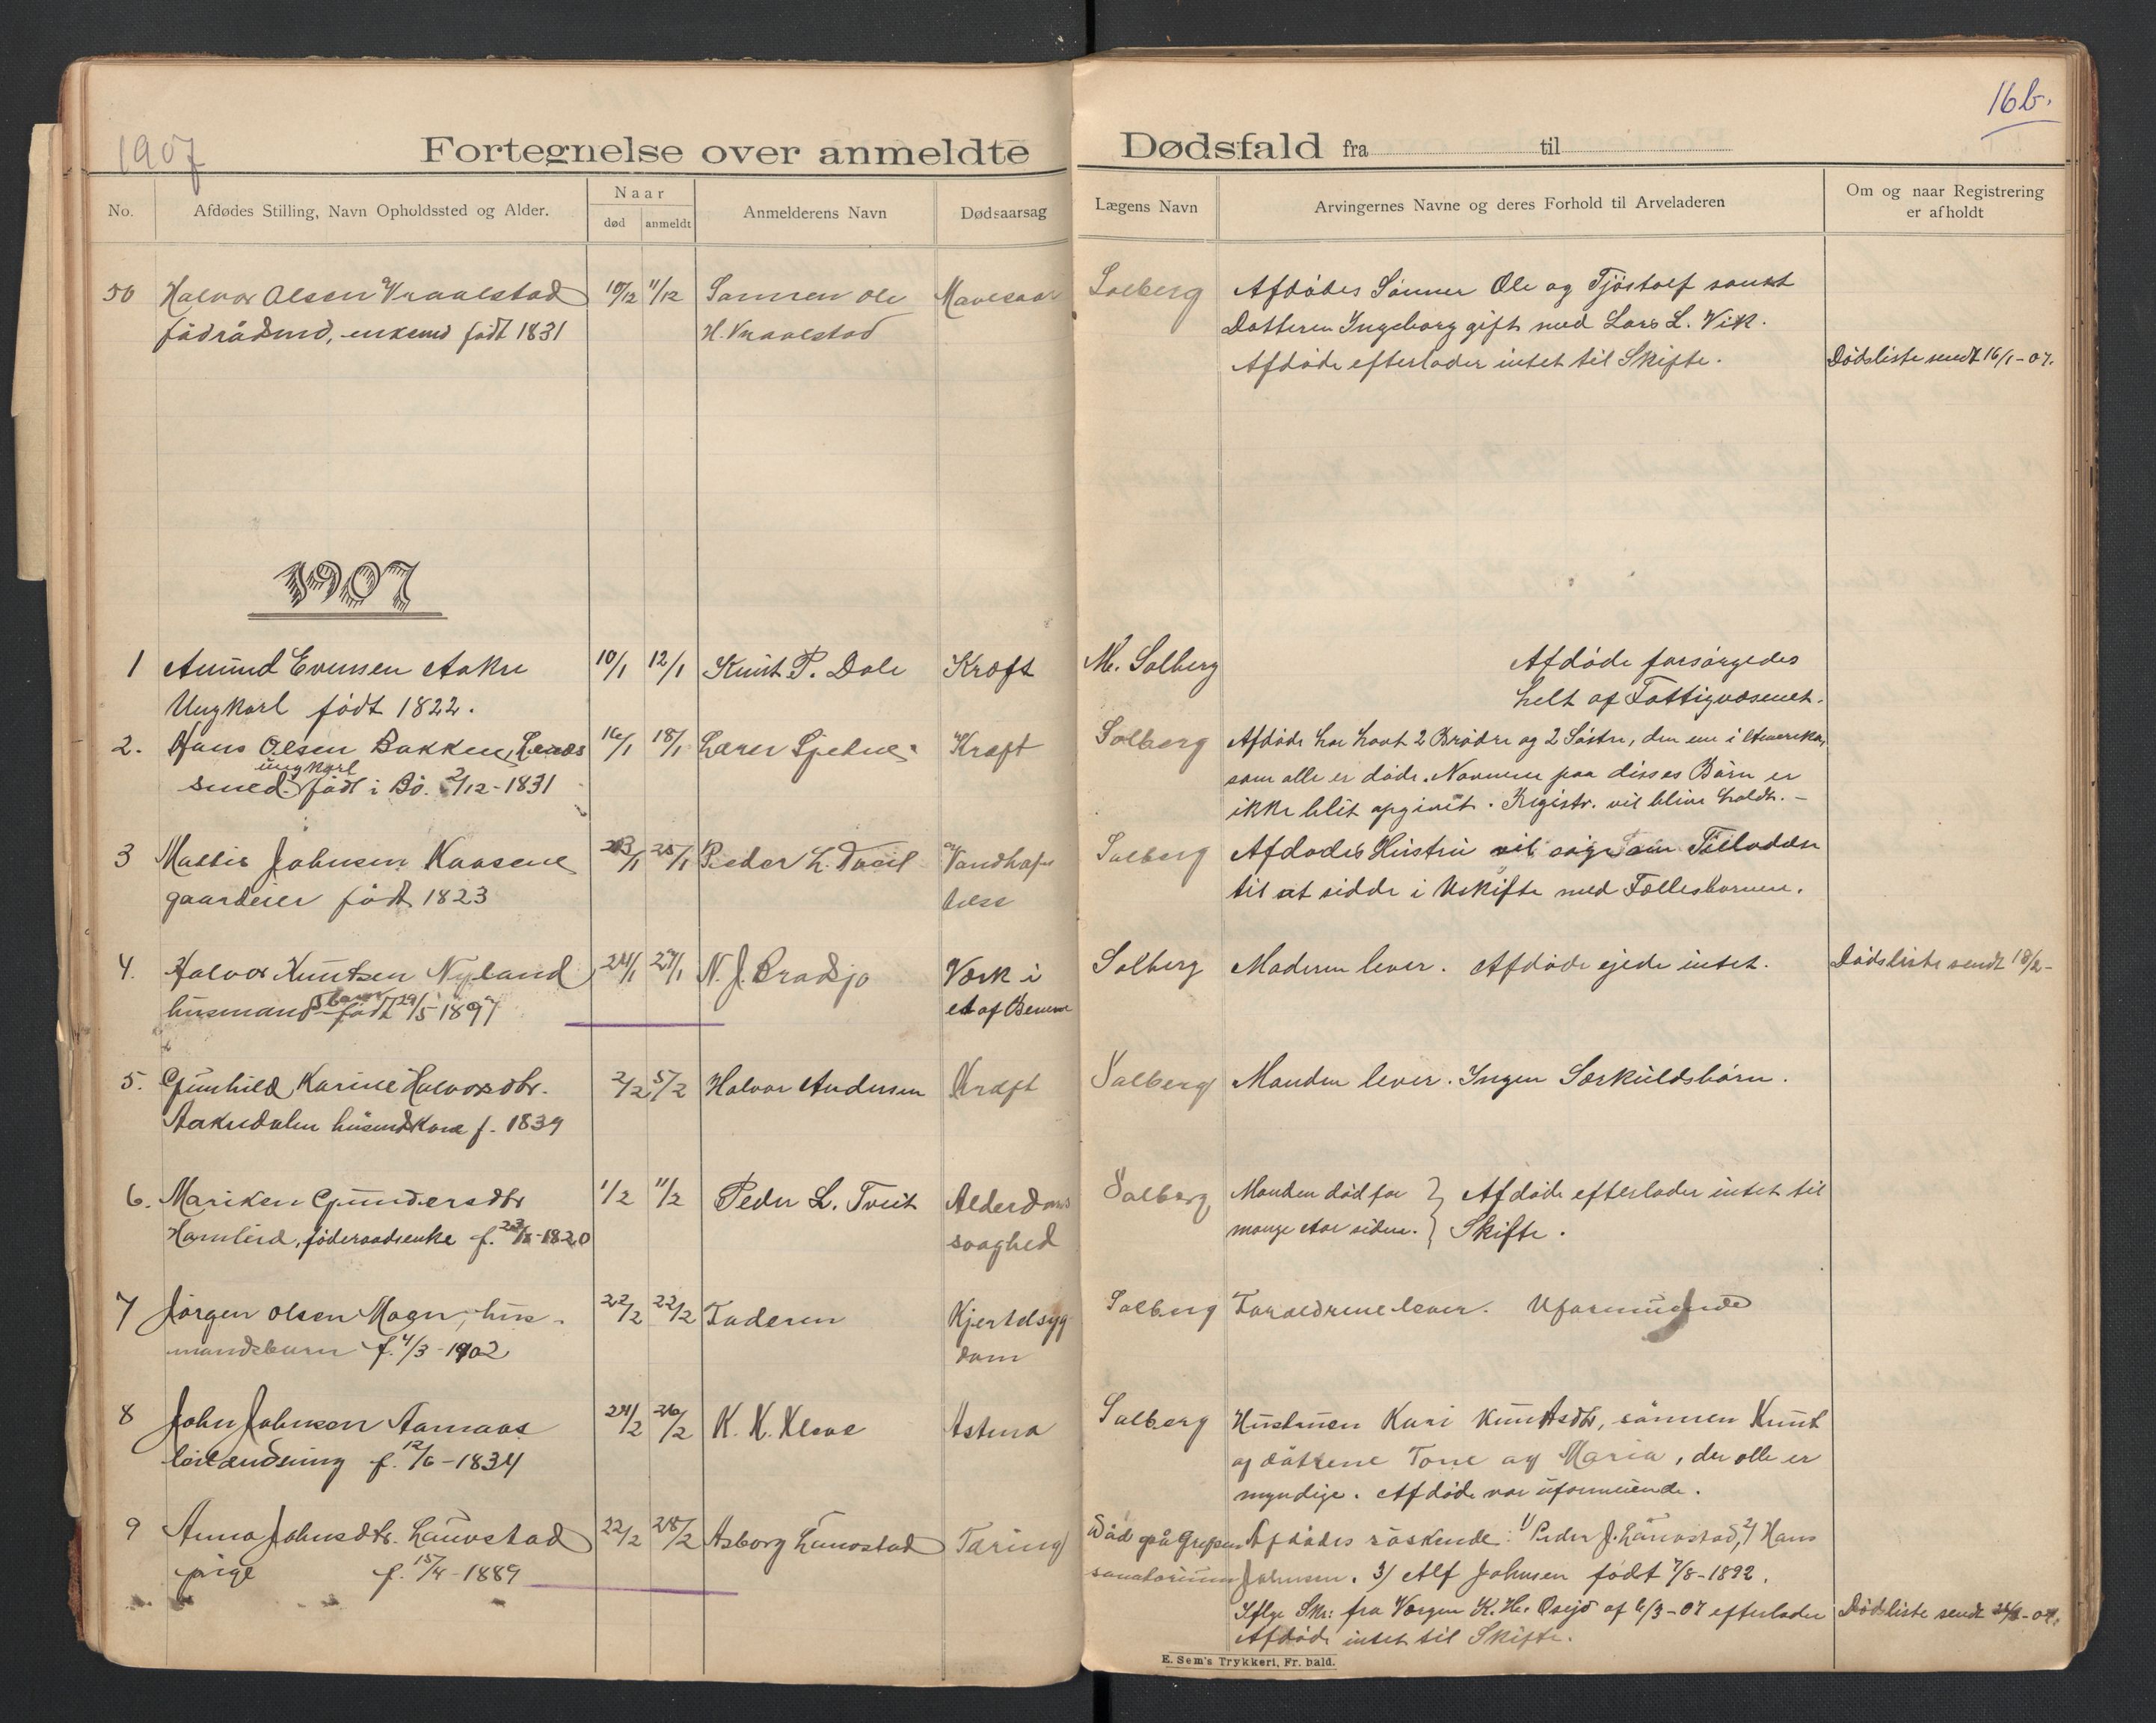 1907
16b.
Fortegnelse over anmeldte Dødsfald fra til
No.
Afdødes Stilling, Navn Opholdssted og Alder.
Naar
død
anmeldt
Anmelderens Navn
Dødsaarsag
Lægens Navn
Arvingernes Navne og deres Forhold til Arveladeren
Om og naar Registrering
er afholdt
50 Halvor Olsen Vraalstad 10/12 11/12 Sønnen Ole Mavesaar Solberg Afdødes Sønner Ole og Tjøstolf samt
fødrådmd, enkemd født 1831 H. Vraalstad Datteren Ingeborg gift med Lars L. Vik.
Afdøde efterlader intet til Skifte. Dødsliste sendt 16/1-07.
1907
1 Amund Evensen Aakre 10/1 12/1 Knut P. Dale Kræft M. Solberg Afdøde forsørgedes
Ungkarl født 1822. helt af Fattigvæsenet.
2. Hans Olsen Bakken, Lunds 16/1 18/1 Lærer Kræft Solberg Afdøde har havt 2 Brødre og 2 Søstre, den ene i Amerika,
ungkarl
smed født i Bö. 2/12-1831 som alle er døde. Navnene paa disses Børn er
ikke blit opgivet. Registr. vil blive holdt. -
3 Mattis Johnsen Kaasene 23/1 25/1 Peder L. Tveit Vandhofte Solberg Afdødes Hustru vil søge om Tilladelse
gaardeier født 1823 til at sidde i Uskifte med Fællesbarnene.
4. Halvor Knutsen Nyland 24/1 27/1 N. J. Bradsjø Værk i Solberg Moderen lever. Afdøde ejede intet. Dødsliste sendt 18/2-
husmandsbarn født 29/5 1897 et af Benene
5. Gunhild Karine Halvorsdtr. 2/2 5/2 Halvor Andersen Kræft Solberg Manden lever. Ingen Særkuldsbørn.
Aakredalen husmdskone f. 1839
6. Mariken Gundersdtr 1/2 11/2 Peder L. Tveit Alderdoms Solberg Manden død for } Afdøde efterlader intet til
føderaadsenke f. 1820 svaghed mange Aar siden. } Skifte.
7 Jørgen Olsen Moen, hus- 22/2 22/2 Faderen Hjertesyg Solberg Forældrene lever. Uformuende
mandsbarn f. 4/3-1902 dom
8 John Johnsen Aamaas 24/2 26/2 K. K. Klovs Astma Solberg Hustruen Kari Knutsdtr, sønnen Knut
leilænding f. 12/6-1834 og døtrene Tone og Maria, der alle er
myndige. Afdøde var uformuende.
9 Anna Johnsdtr. Lauvstad 22/2 28/2 Asborg Lauvstad Tæring Död på Grefsen Afdødes søskende: 1) Peder J. Lauvstad, 2) Hans
pige f. 15/4-1889 sanatorium Johnsen. 3) Alf Johnsen født 7/8-1892.
Ifølge Skr: fra Værgen K. H. Øsejo af 6/3-07 efterlader Dødsliste sendt
Afdøde intet til Skifte.
E. Sem's Trykkeri, Fr. hald.